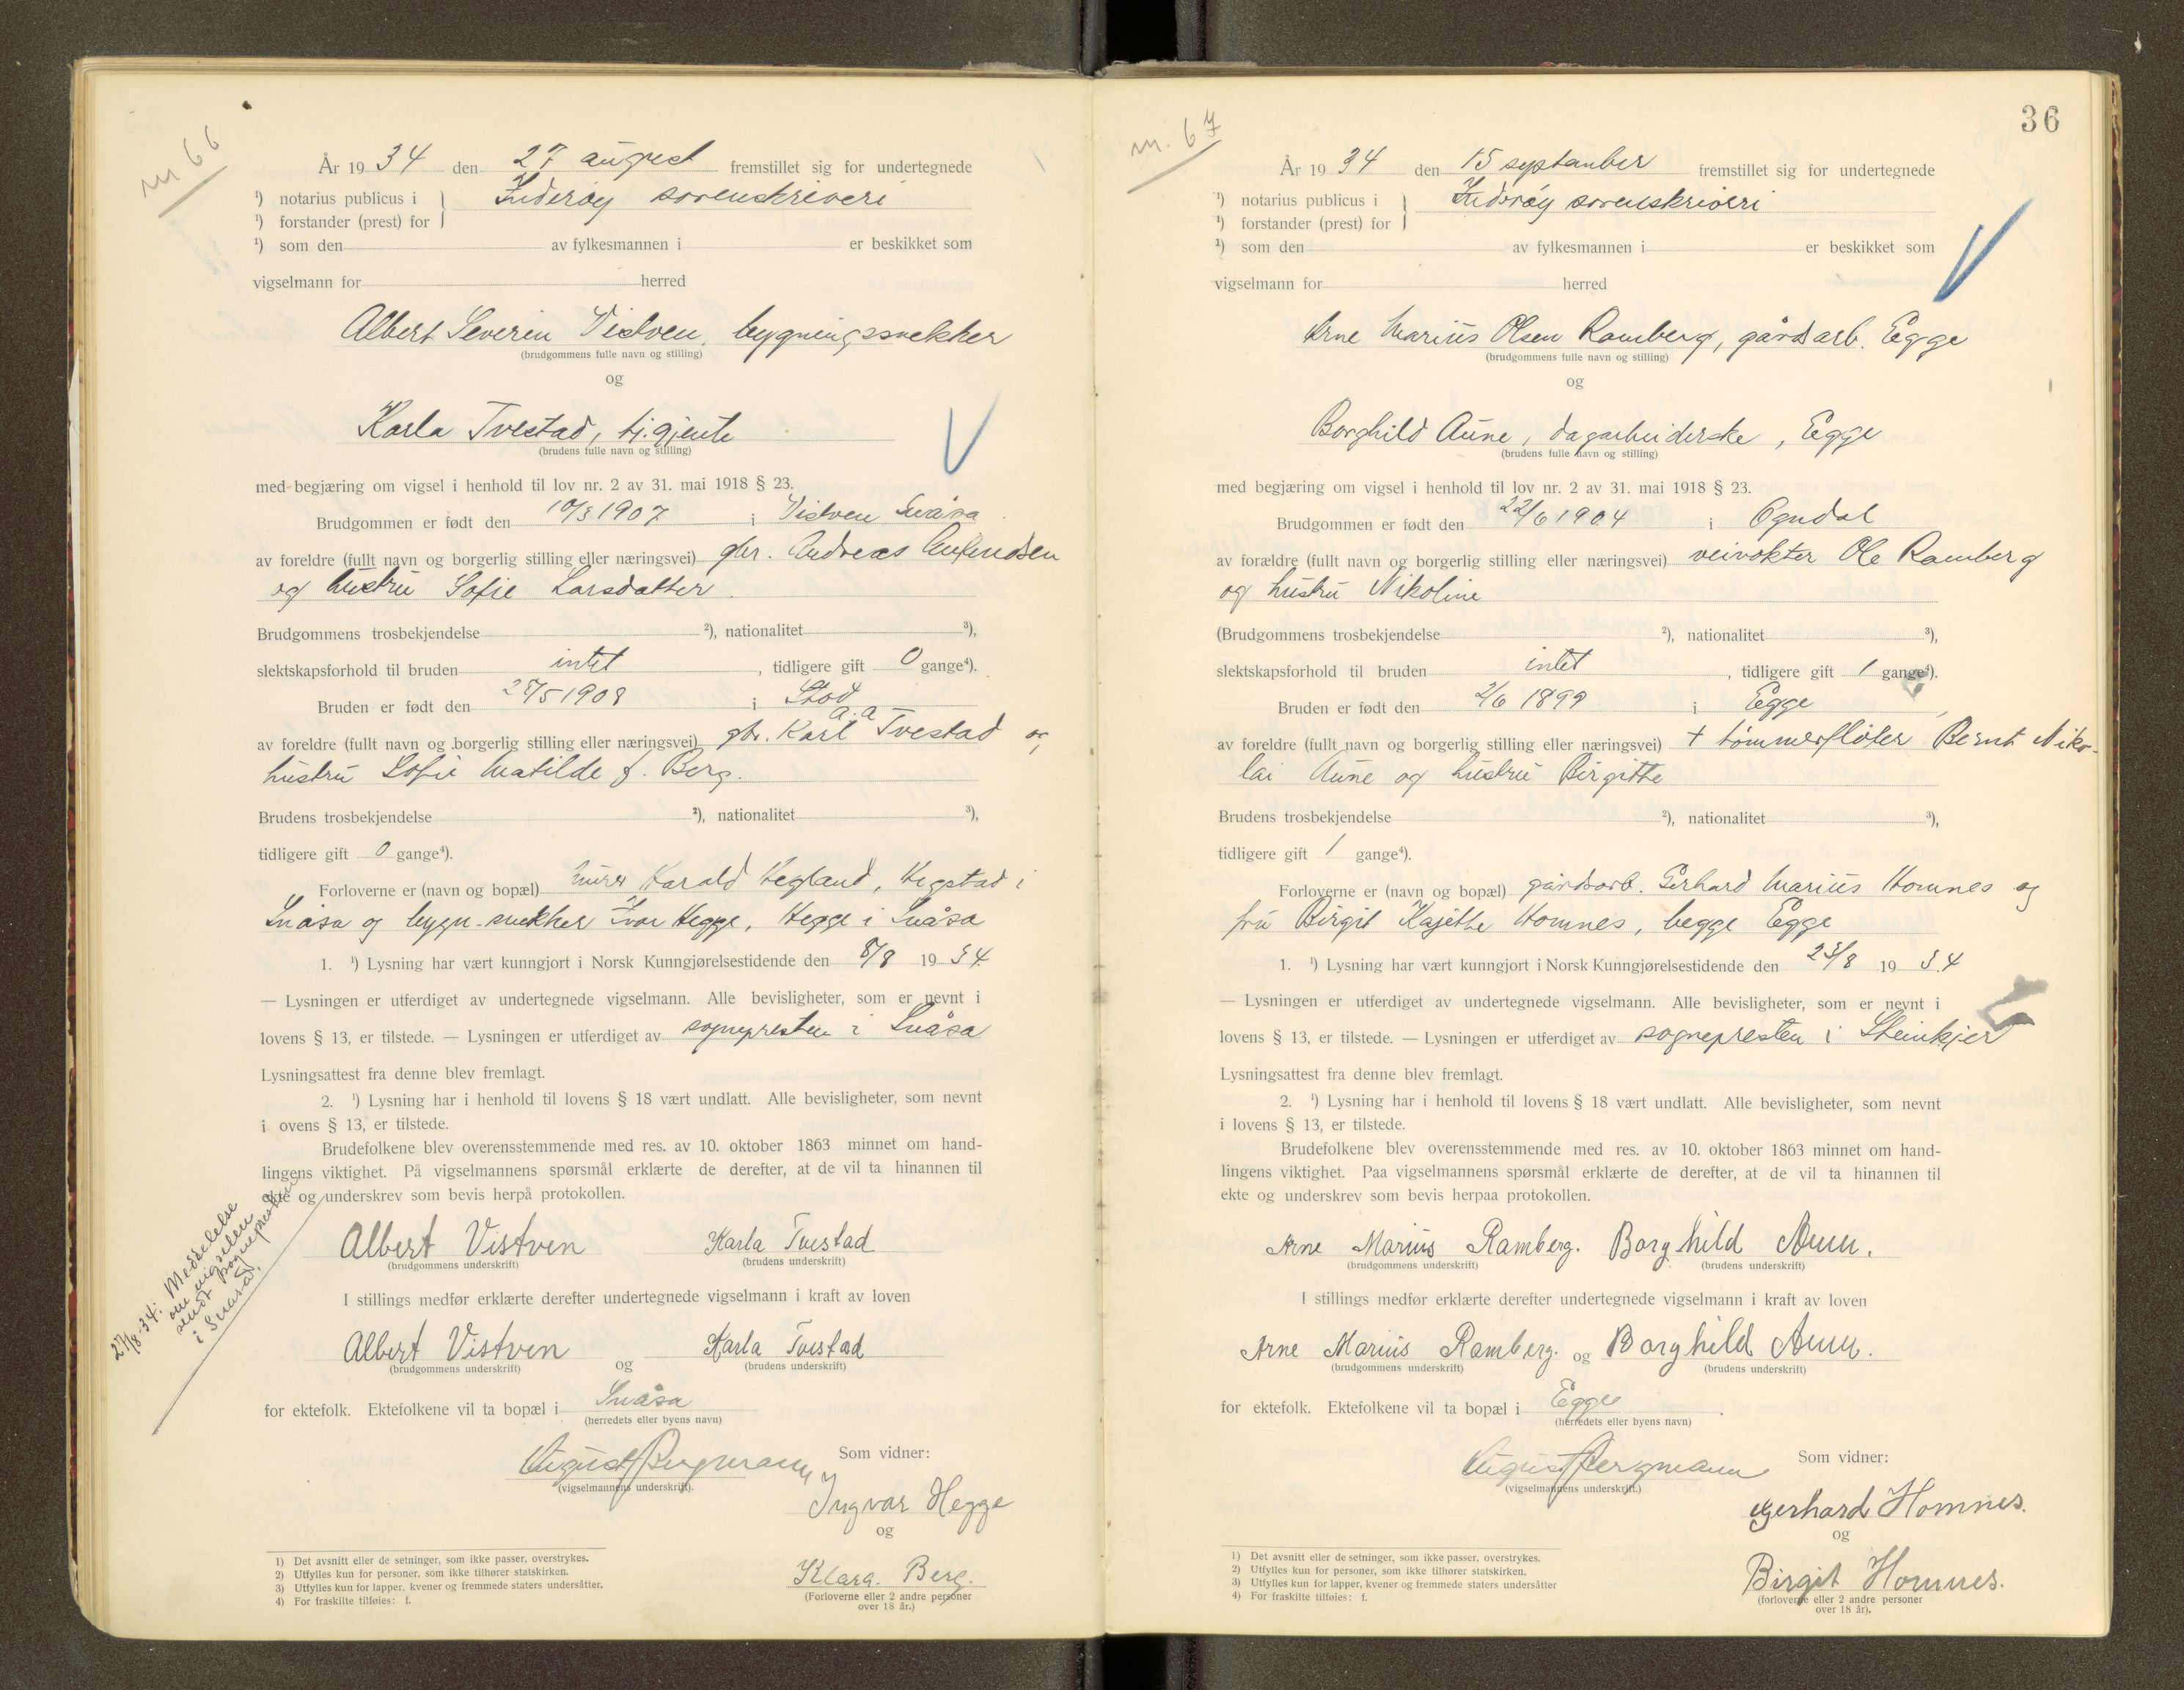 nr. 66
År 1934 den 27 august fremstillet sig for undertegnede
¹) notarius publicus i } Inderøy sorenskriveri
¹) forstander (prest) for
¹) som den av fylkesmannen i er beskikket som
vigselmann for herred
Albert Severin Vistven, bygningssnekker
(brudgommens fulle navn og stilling)
og
Karla Tvestad, tj.gjente
(brudens fulle navn og stilling)
med begjæring om vigsel i henhold til lov nr. 2 av 31. mai 1918 § 23.
Brudgommen er født den 10/3 1907 i Vistven Snåsa
av foreldre (fullt navn og borgerlig stilling eller næringsvei) gbr. Andreas
og hustru Sofie Larsdatter.
Brudgommens trosbekjendelse ²), nationalitet ³),
slektskapsforhold til bruden intet, tidligere gift 0 gange⁴).
Bruden er født den 28/5 1908 i Stod
a.a
av foreldre (fullt navn og borgerlig stilling eller næringsvei) gbr. Karl Tvestad og
hustru Sofie Matilde f. Berg.
Brudens trosbekjendelse ²), nationalitet ³),
tidligere gift 0 gange⁴).
Forloverne er (navn og bopæl) murer Harald Hegland, Hegstad i
Snåsa og bygn.snekker Ivar Hegge, Hegge i Snåsa
1. ¹) Lysning har vært kunngjort i Norsk Kunngjørelsestidende den 8/8 1934.
— Lysningen er utferdiget av undertegnede vigselmann. Alle bevisligheter, som er nevnt i
lovens § 13, er tilstede. — Lysningen er utferdiget av sognepresten i Snåsa
Lysningsattest fra denne blev fremlagt.
2. ¹) Lysning har i henhold til lovens § 18 vært undlatt. Alle bevisligheter, som nevnt
i ovens § 13, er tilstede.
Brudefolkene blev overensstemmende med res. av 10. oktober 1863 minnet om hand-
lingens viktighet. På vigselmannens spørsmål erklærte de derefter, at de vil ta hinannen til
ekte og underskrev som bevis herpå protokollen.
27/8-34: Meddelelse
om vigselen
sendt sognepresten
i Snåsa.
Albert Vistven Karla Tvestad
(brudgommens underskrift) (brudens underskrift)
I stillings medfør erklærte derefter undertegnede vigselmann i kraft av loven
Albert Vistven og Karla Tvestad
(brudgommens underskrift) (brudens underskrift)
for ektefolk. Ektefolkene vil ta bopæl i Snåsa
(herredets eller byens navn)
August Bergmann Som vidner:
(vigselmannens underskrift).
Ingvar Hegge
og
Klara. Berg.
(Forloverne eller 2 andre personer
over 18 år.)
1) Det avsnitt eller de setninger, som ikke passer, overstrykes.
2) Utfylles kun for personer, som ikke tilhører statskirken.
3) Utfylles kun for lapper, kvener og fremmede staters undersåtter.
4) For fraskilte tilføies: f.
36
nr. 67
År 1934 den 15 september fremstillet sig for undertegnede
¹) notarius publicus i } Inderøy sorenskriveri
¹) forstander (prest) for
¹) som den av fylkesmannen i er beskikket som
vigselmann for herred
Arne Marius Olsen Ramberg, gårdsarb. Egge
(brudgommens fulle navn og stilling)
og
Borghild Aune, dagarbeiderske, Egge
(brudens fulle navn og stilling)
med begjæring om vigsel i henhold til lov nr. 2 av 31. mai 1918 § 23.
Brudgommen er født den 22/6 1904 i Ogndal
av forældre (fullt navn og borgerlig stilling eller næringsvei) veivokter Ole Ramberg
og hustru Nikoline
(Brudgommens trosbekjendelse ²), nationalitet ³),
slektskapsforhold til bruden intet, tidligere gift 1 gange⁴).
Bruden er født den 2/6 1899 i Egge,
av foreldre (fullt navn og borgerlig stilling eller næringsvei) + tømmerfløter Bernt Niko-
lai Aune og hustru Birgitte
Brudens trosbekjendelse ²), nationalitet ³),
tidligere gift 1 gange⁴).
Forloverne er (navn og bopæl) gårdsarb. Gerhard Marius Homnes og
fru Birgit Kajethe Homnes, begge Egge
1. ¹) Lysning har vært kunngjort i Norsk Kunngjørelsestidende den 23/8 1934
— Lysningen er utferdiget av undertegnede vigselmann. Alle bevisligheter, som er nevnt i
lovens § 13, er tilstede. — Lysningen er utferdiget av sognepresten i Steinkjer
Lysningsattest fra denne blev fremlagt.
2. ¹) Lysning har i henhold til lovens § 18 vært undlatt. Alle bevisligheter, som nevnt
i lovens § 13, er tilstede.
Brudefolkene blev overensstemmende med res. av 10. oktober 1863 minnet om hand-
lingens viktighet. Paa vigselmannens spørsmål erklærte de derefter, at de vil ta hinannen til
ekte og underskrev som bevis herpaa protokollen.
Arne Marius Ramberg. Borghild Aun.
(brudgommens underskrift) (brudens underskrift)
I stillings medfør erklærte derefter undertegnede vigselmann i kraft av loven
Arne Marius Ramberg. og Borghild Aun.
(brudgommens underskrift) (brudens underskrift)
for ektefolk. Ektefolkene vil ta bopæl i Egge.
(herredets eller byens navn)
August Bergmann Som vidner:
(vigselmannens underskrift.)
Gerhard Homnes.
og
Birgit Homnes.
(forloverne eller 2 andre personer
over 18 år).
1) Det avsnitt eller de setninger, som ikke passer, overstrykes.
2) Utfylles kun for personer, som ikke tilhører statskirken.
3) Utfylles kun for lapper, kvener og fremmede staters undersåtter
4) For fraskilte tilføies: f.